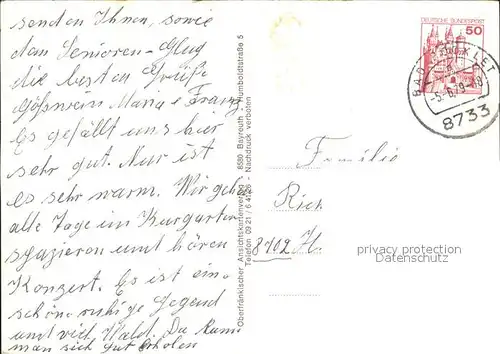 senden Ihnen, sowie
dem Senioren-Club
die besten Grüße
Gößwein Maria & Franz.
Es gefällt uns hier
sehr gut. Nur ist
es sehr warm. Wir gehen
alle Tage im Kurgarten
spazieren und hören
Konzert. Es ist eine
schöne ruhige Gegend
und viel Wald. Da kann
man sich gut erholen
Oberfränkischer Ansichtskartenverlag 8580 Bayreuth Humboldtstraße 5
Telefon 09 21 / 6 47 26 - Nachdruck verboten
DEUTSCHE BUNDESPOST
50
BAD BOCKLET
-5.-6.79-18
8733
Familie
8702
privacy protection
Datenschutz